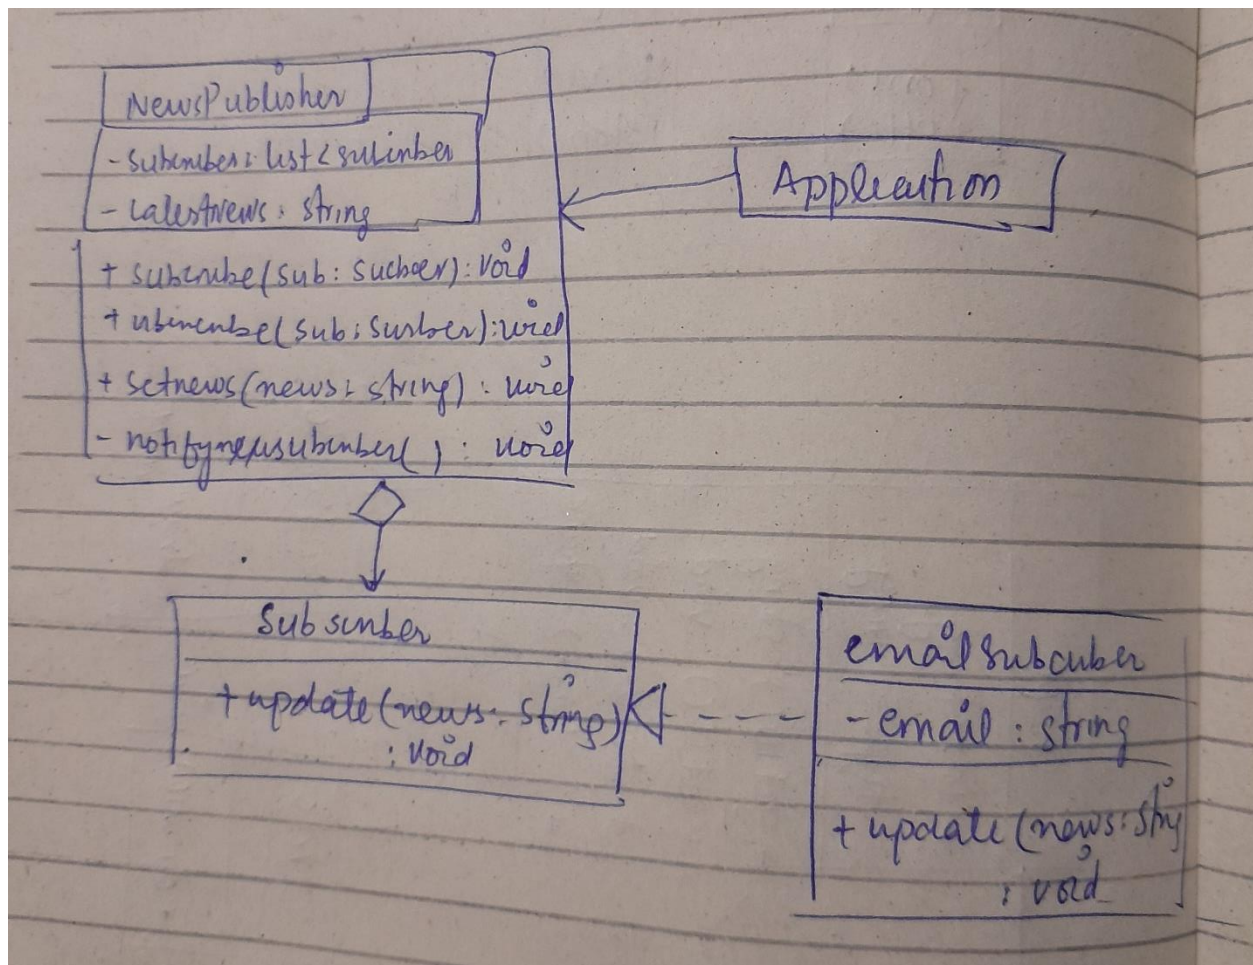 NewsPublisher
- Subscriber: list<subscriber
- latestnews: string
+ subscribe(sub: sucber): void
+ (sub: surber): void
+ setnews(news: string): void
- notifynewsubscriber( ): void
Application
Subscriber
+ update(news: string)
: void
email Subcuber
- email: string
+ update(news: strng
: void